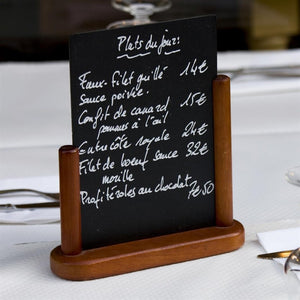 Plats du jour:
Faux-Filet grillé 14€
sauce poivre.
Confit de canard 15€
pommes à l'ail
Entrecôte royale 24€
Filet de boeuf sauce 32€
morille
Profitéroles au chocolat
7€50